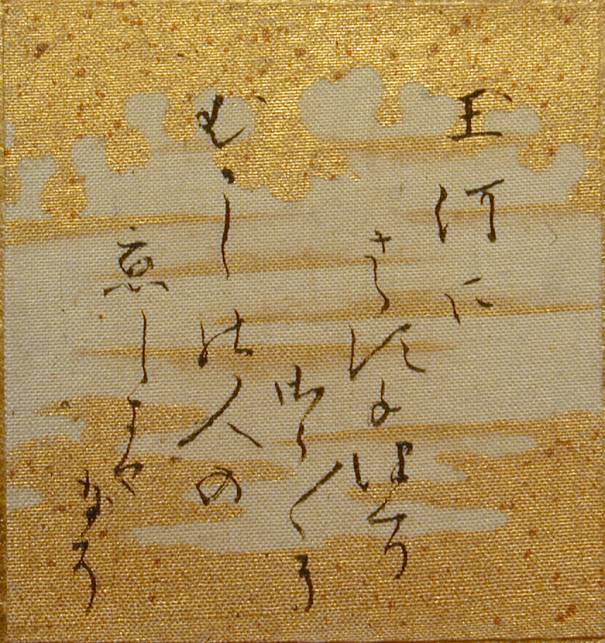 玉河に
さらすてつくり
さら〱に
むかしの人の
恋しきやなそ